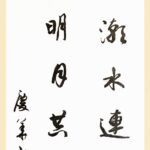 潮水連
明月共
慶華